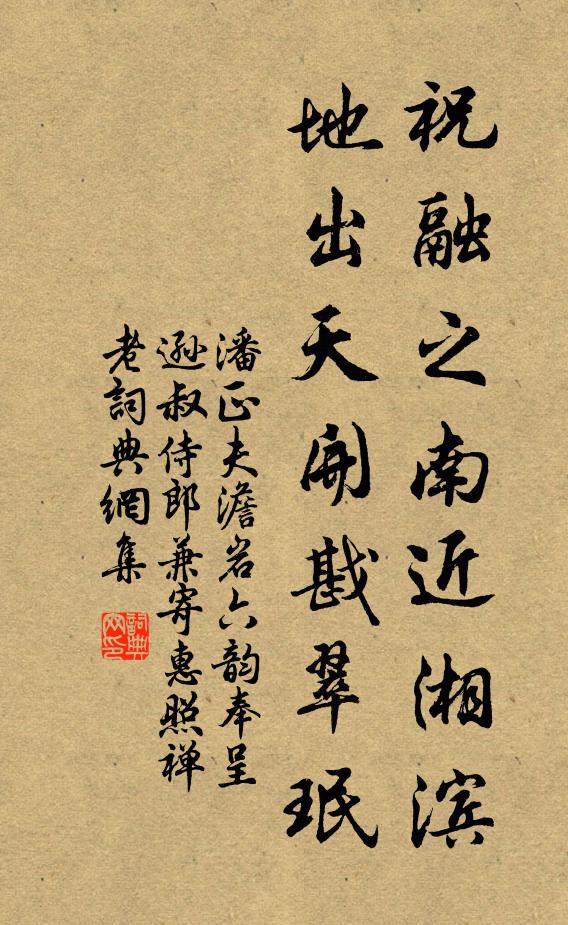 祝融之南近湘滨
地出天開戡翠珉
潘正夫澹岩六韵奉呈
遜叔侍郎兼寄惠照禅
老詞典網集
詞典网印